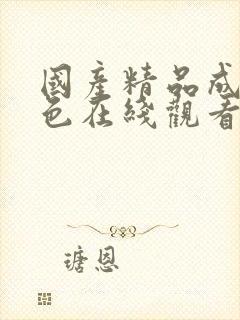 國產精品成
色在綫觀看
瑭恩